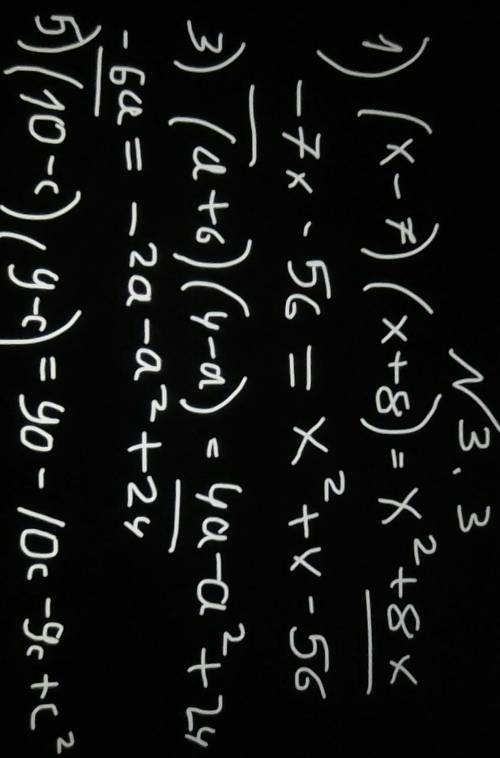 N 3.3
1) (x-7)(x+8) = x²+8x
-7x - 56 = x²+x-56
3) (a+6)(4-a) = 4a-a²+24
-6a = -2a-a²+24
5) (10-c)(9-c) = 90-10c-9c+c²